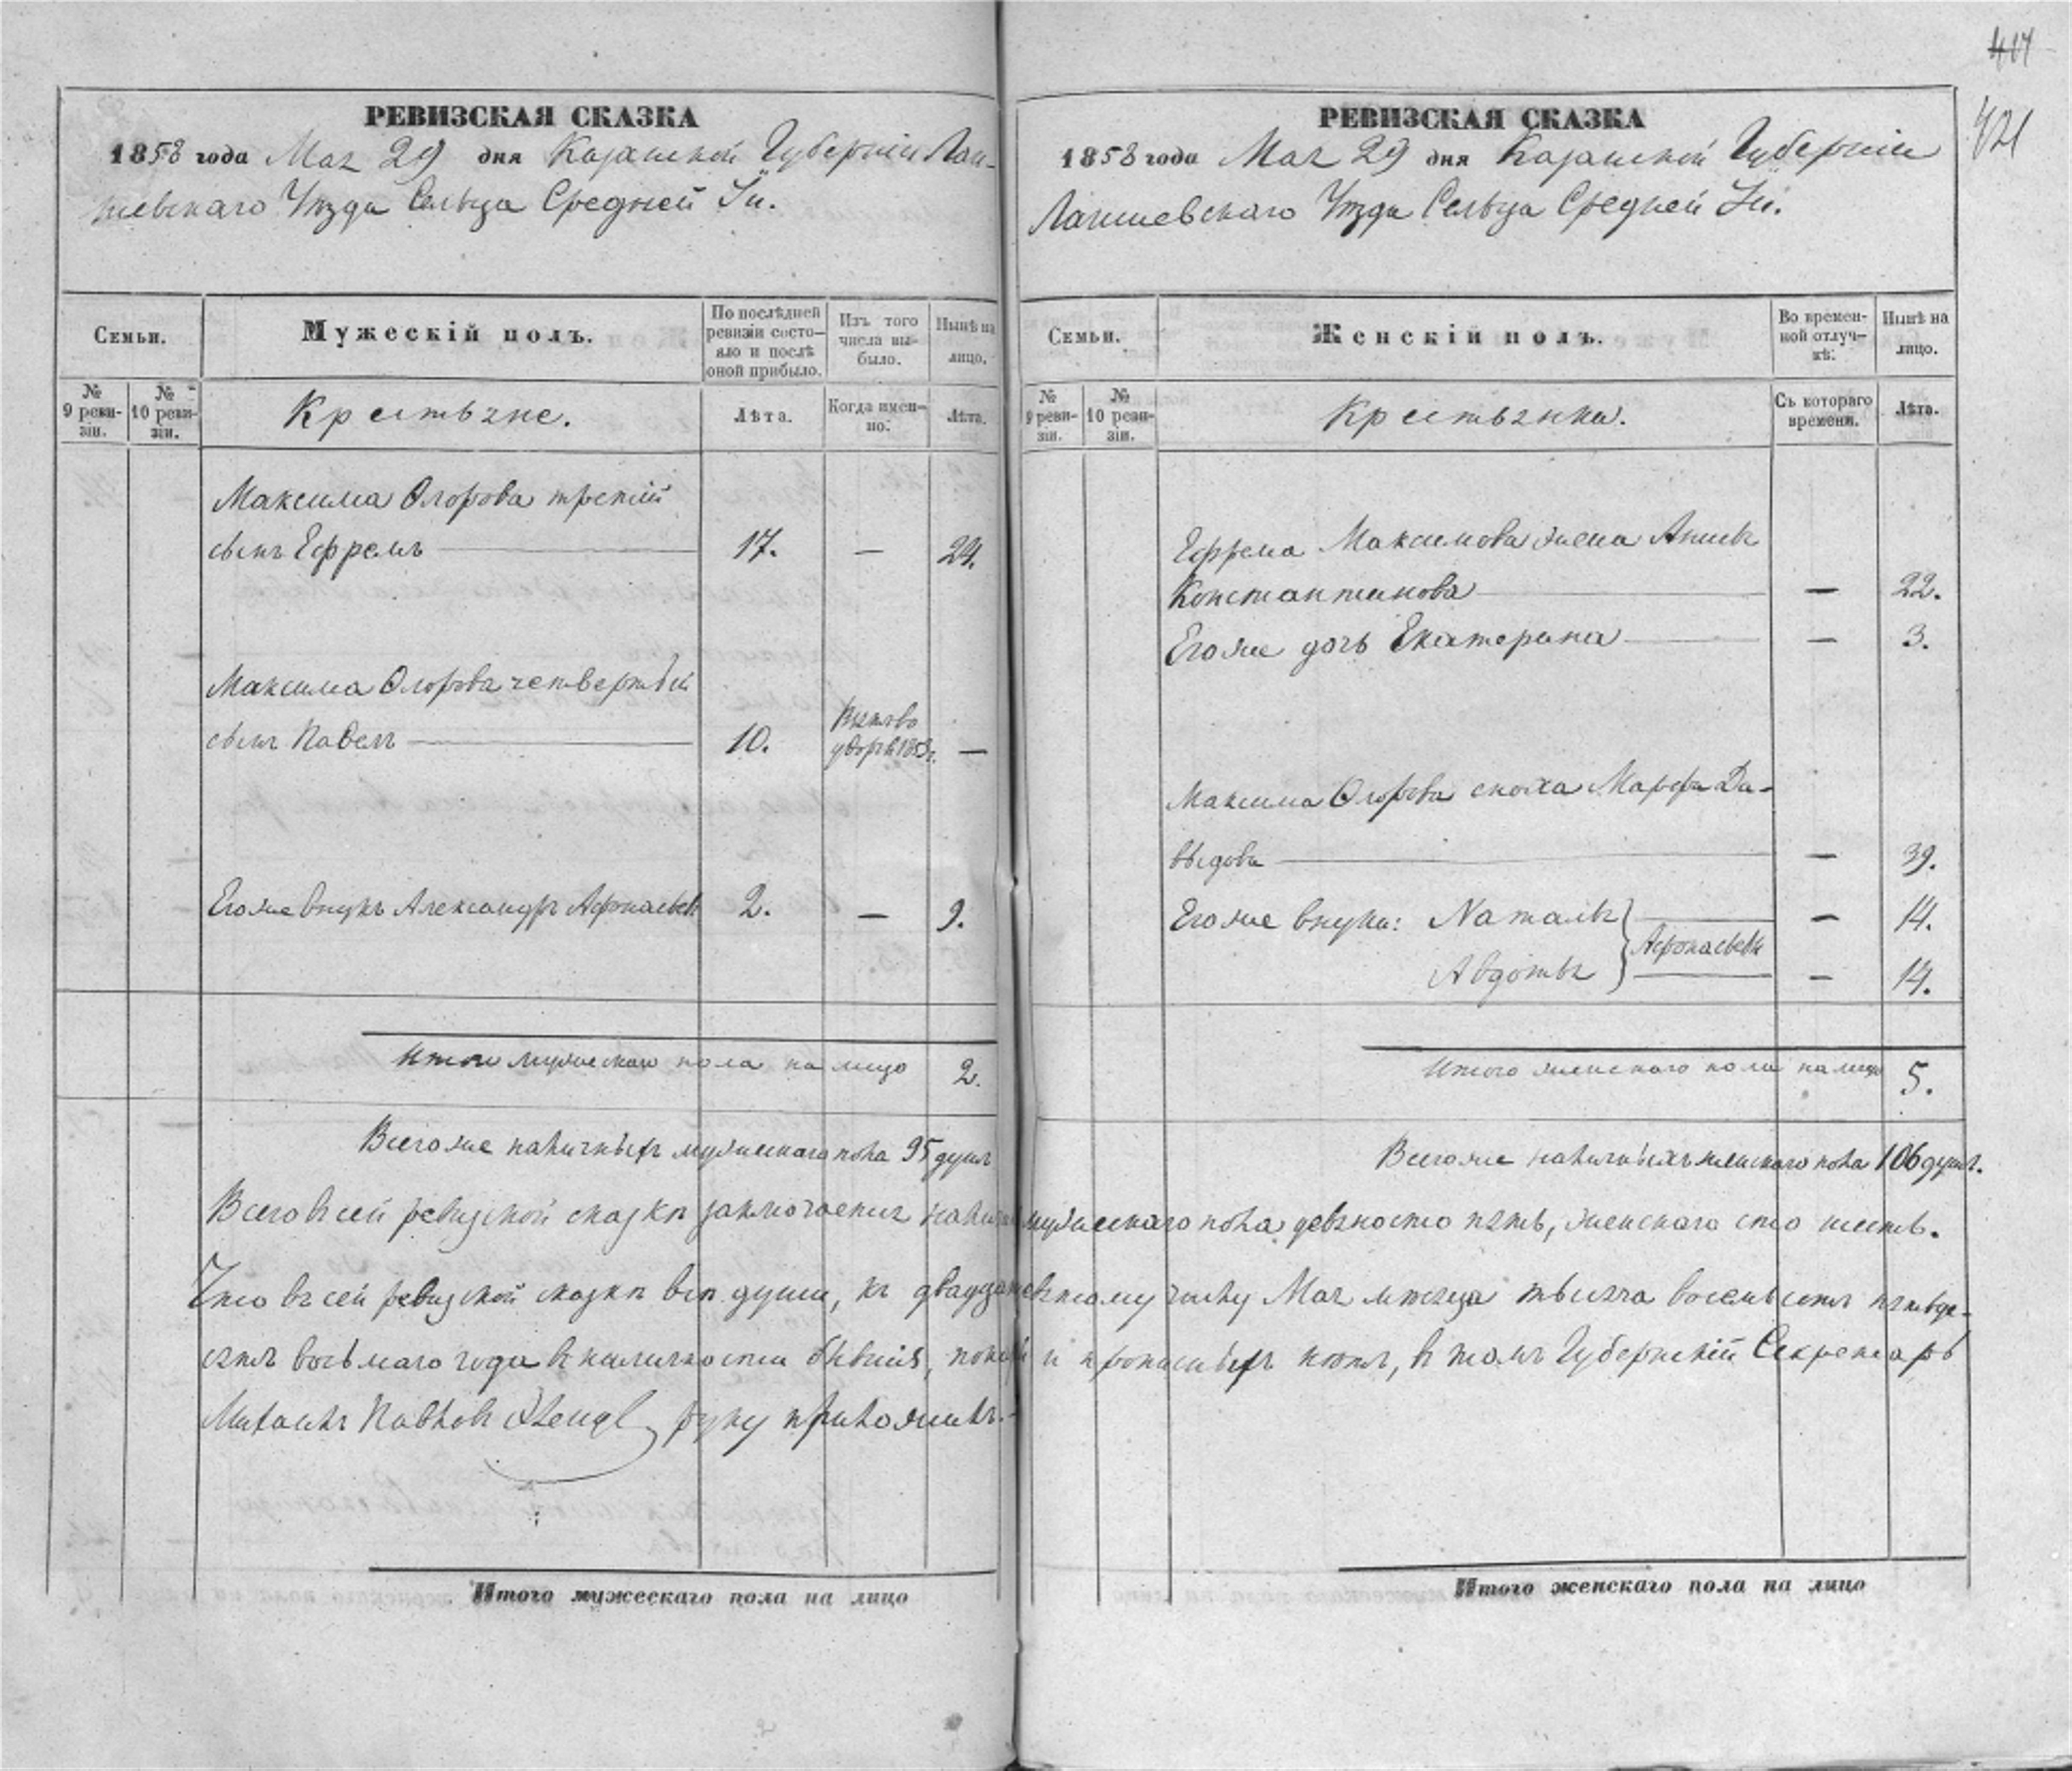 417
421
РЕВИЗСКАЯ СКАЗКА
1858 года Мая 29 дня Казанской Губерніи Лаи-
шевскаго Уѣзда Сельца Средней Іи.
Семьи.
Мужескій полъ.
По послѣдней ревизіи состо-яло и послѣ оной прибыло.
Изъ того числа вы-было.
Нынѣ на лицо.
№ 9 реви-зіи.
№ 10 реви-зіи.
Крестьяне.
Лѣта.
Когда имен-но.
Лѣта.
Максима Ѳлорова третій
сынъ Ефремъ 17. — 24.
Максима Ѳлорова четвертый
сынъ Павелъ 10. —
1853 г.
Егоже внукъ Александръ Афонасьевъ 2. — 9.
Итого мужескаго пола на лицо 2.
Всегоже наличныхъ мужескаго пола 95 душъ
РЕВИЗСКАЯ СКАЗКА
1858 года Мая 29 дня Казанской Губерніи
Лаишевскаго Уѣзда Сельца Средней Іи.
Семьи.
Женскій полъ.
Во времен-ной отлуч-кѣ.
Нынѣ на лицо.
№ 9 реви-зіи.
№ 10 реви-зіи.
Крестьянки.
Съ котораго времени.
Лѣта.
Ефрема Максимова жена Анисья
Константинова — 22.
Егоже дочь Екатерина — 3.
Максима Ѳлорова сноха Марфа Да-
выдова — 39.
Егоже внуки: Наталья — 14.
Афонасьевы
Авдотья — 14.
Итого женскаго пола на лицо 5.
Всегоже наличныхъ женскаго пола 106 душъ.
Всего въ сей ревизской сказкѣ заключается мужескаго пола девяносто пять, женскаго сто шесть.
Что въ сей ревизской сказкѣ всѣ души, къ девятому числу Мая мѣсяца тысяча восемьсотъ пятьде-
сятъ восьмаго года въ наличности бывшія, и прописныхъ нѣтъ, въ томъ Губернскій Секретарь
Михаилъ Павловъ руку приложилъ.
Итого мужескаго пола на лицо
Итого женскаго пола на лицо